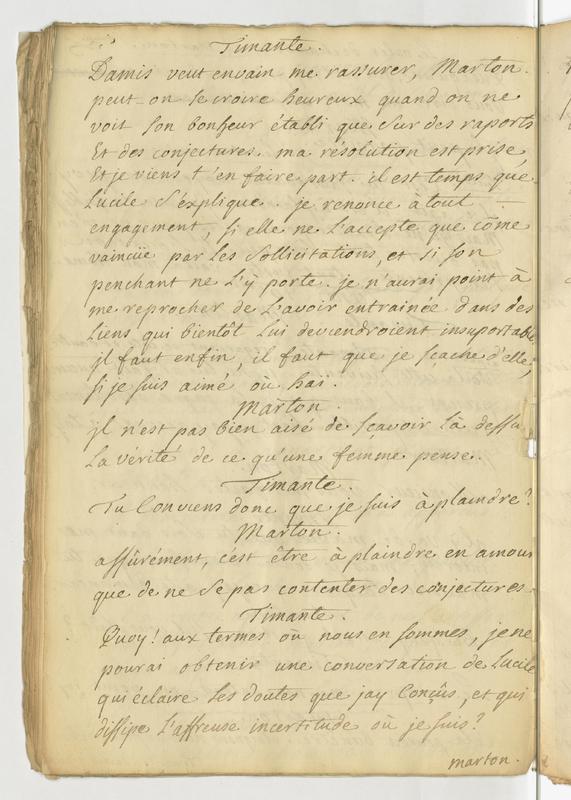 Timante.
Damis veut envain me rassurer, Marton.
peut-on se croire heureux quand on ne
voit son bonheur établi que sur des raports
Et des conjectures. ma résolution est prise,
Et je viens t'en faire part. il est temps que
Lucile s'explique. je renonce à tout
engagement, si elle ne l'accepte que côme
vaincüe par les sollicitations, et si son
penchant ne l'ÿ porte. je n'aurai point à
me reprocher de l'avoir entrainée dans des
liens qui bientôt lui deviendroient insuportable
jl faut enfin, il faut que je scache d'elle,
si je suis aimé où haï.
Marton.
jl n'est pas bien aisé de sçavoir là dessu
La vérité de ce qu'une femme pense.
Timante.
Tu Conviens donc que je suis à plaindre?
Marton.
assûrément, c'est être à plaindre en amour
que de ne se pas contenter des conjectures.
Timante.
Quoy! aux termes où nous en sommes, je ne
pourai obtenir une conversation de Lucile
qui éclaire les doutes que jay Conçûs, et qui
dissipe l'affreuse incertitude où je suis?
marton.